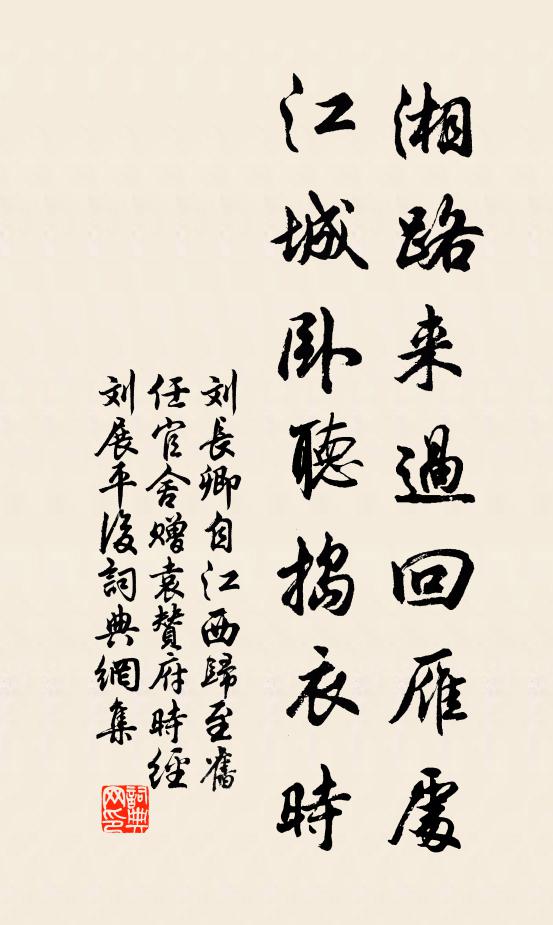 湘路来過回雁處
江城卧聽搗衣時
刘長卿自江西歸至舊
任官舍贈袁贊府時經
刘展平後詞典網集
詞典
网印